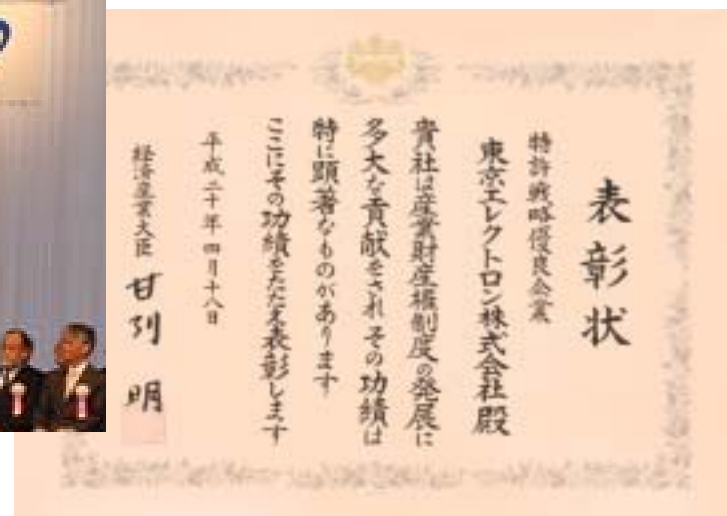 表彰状
特許戦略優良企業
東京エレクトロン株式会社殿
貴社は産業財産権制度の発展に
多大な貢献をされその功績は
特に顕著なものがあります
ここにその功績をたたえ表彰します
平成二十年四月十八日
経済産業大臣 甘利 明